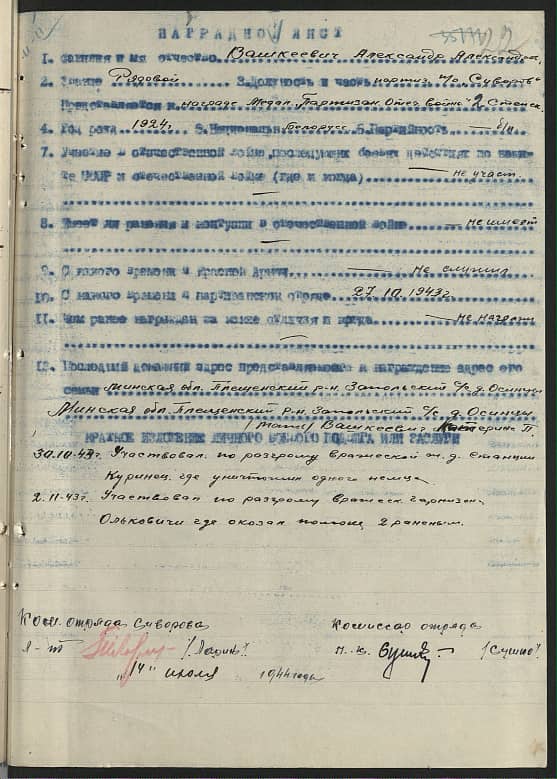 НАГРАДНОЙ ЛИСТ
1. Фамилия и имя отчество Вашкеевич Александр Александр.
2. Звание Рядовой 3. Должность и часть партиз. п/о Суворова
Представляется к награде Медал. "Партизан Отеч. войны" 2 степен.
4. Год рожд. 1924г. 5. Национальн. Белорусс. 6. Партийность б/п
7. Участие в отечественной войне, последующих боевых действиях по защите СССР и отечественной войне (где и когда) — не участ.
8. Имеет ли ранения и контузии в отечественной войне — не имеет
9. С какого времени в Красной Армии — не служил
10. С какого времени в партизанском отряде 27.10.1943г.
11. Чем ранее награжден за какие отличия и когда — не награж.
12. Последний домашний адрес представляемого к награждению адрес его
семьи Минская обл. Плещенский р-н. Запольский с/с д. Осинцы
Минская обл. Плещенский р-н. Запольский с/с д. Осинцы
/мать/ Вашкеевич Катерине П.
КРАТКОЕ ИЗЛОЖЕНИЕ ЛИЧНОГО БОЕВОГО ПОДВИГА ИЛИ ЗАСЛУГИ
30.10-43г. Участвовал по разгрому вражеской ж.д. станции
Куринец, где уничтожил одного немца.
2.11-43г. Участвовал по разгрому вражеск. гарнизона
Ольковичи где оказал помощь 2 раненым.
Ком. отряда Суворова
Комиссар отряда
л-т /Ларин/
п.к. Сушко /Сушко/
"14" июля 1944 года